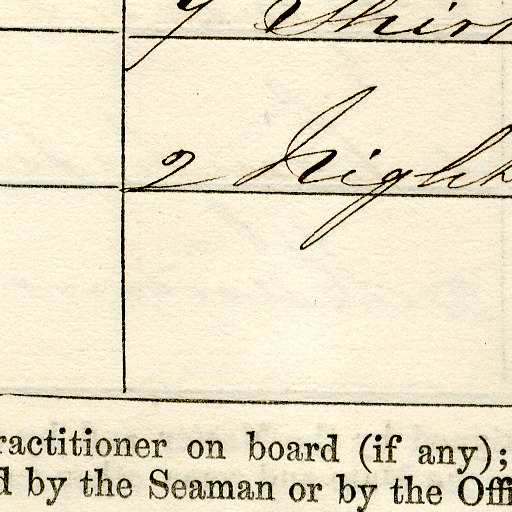 2 Night
ractitioner on board (if any);
d by the Seaman or by the Offi